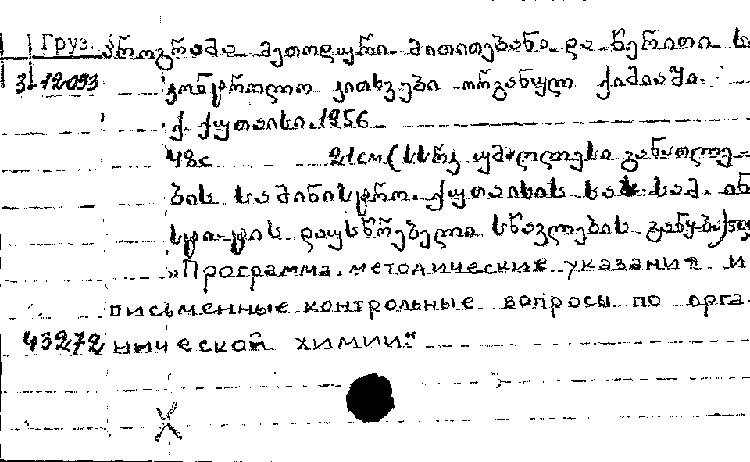 Груз. პროგრამა მეთოდური მითითებანი და წერითი ს
3-12093 კონტროლო კითხვები ორგანულ ქიმიაში.
ქ. ქუთაისი. 1956
48с 21см (სსრკ უმაღლესი განათლე-
ბის სამინისტრო. ქუთაისის სას. სამ. ინ
სტი-ტის დაუსწრებელი სწავლების განყ-ბა)
„Программа, методические указания и
письменные контрольные вопросы по орга-
43272 нической химии."